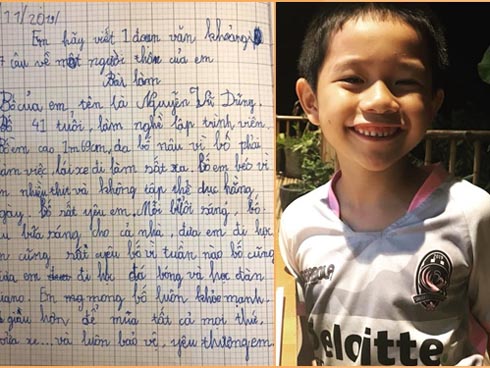 11/2019/
Em hãy viết 1 đoạn văn khoảng
7 câu về một người thân của em
Bài làm
Bố của em tên là Nguyễn Thi Dũng.
Bố 41 tuổi, làm nghề lập trình viên.
Bố em cao 1m69cm, da bố nâu vì bố phải
làm việc, lái xe đi làm rất xa. Bố em béo vì
ăn nhiều thịt và không tập thể dục hằng
ngày. bố rất yêu em. Mỗi buổi sáng, bố
bữa sáng cho cả nhà, đưa em đi học
em cũng rất yêu bố vì tuần nào bố cũng
đưa em đi học đá bóng và học đàn
piano. Em mg mong bố luôn khỏe mạnh,
giàu hơn để mua tất cả mọi thứ,
xe... và luôn bảo vệ, yêu thương em
Deloitte